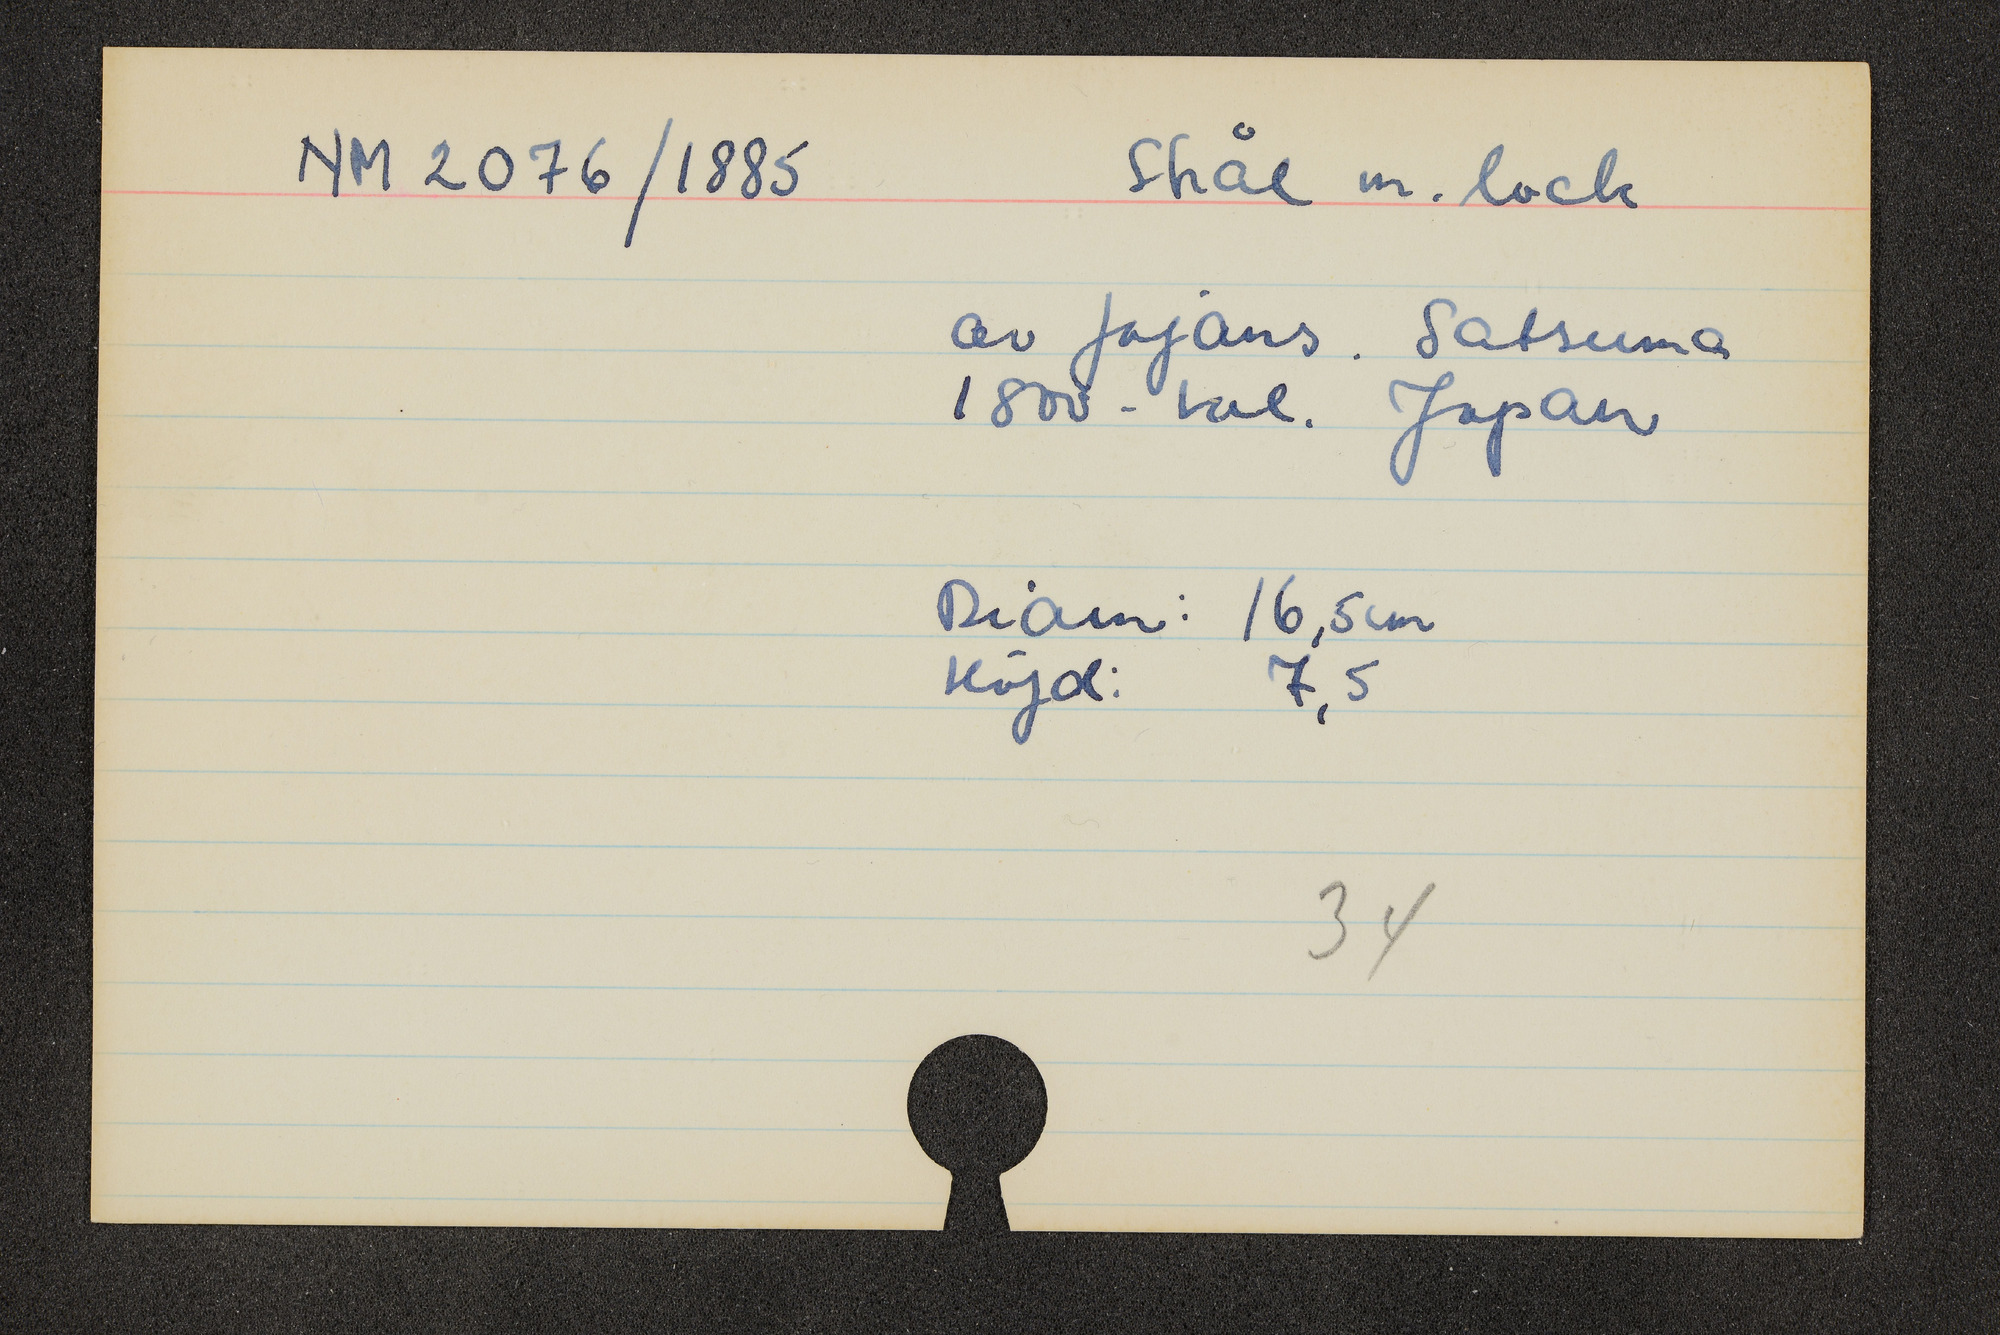 NM 2076/1885 Skål m. lock
av fajans. Satsuma
1800-tal. Japan
Diam: 16,5cm
Höjd: 7,5
34